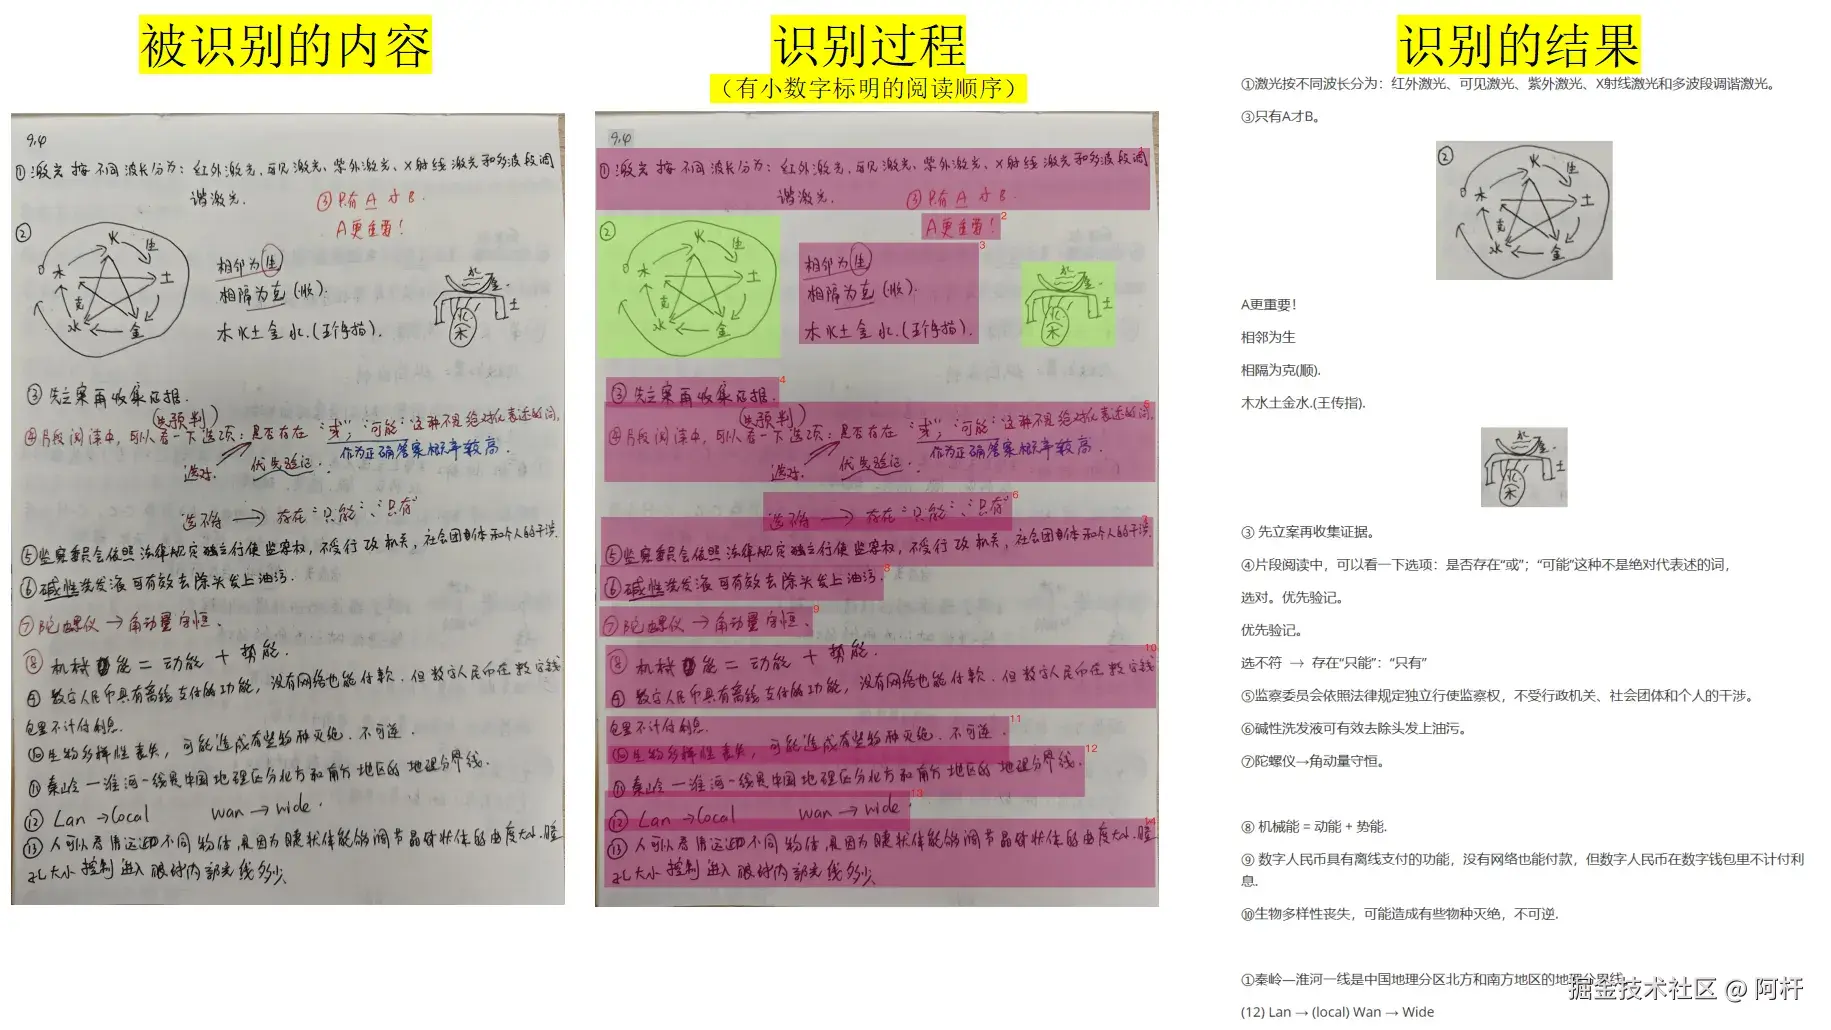 被识别的内容
9.4
①激光按不同波长分为：红外激光、可见激光、紫外激光、X射线激光和多波段调
谐激光.
③只有A才B.
A更重要！
②
火 生 土 金 水 木 克
相邻为生
相隔为克(顺).
木火土金水.(五个手指).
水 土 火 木
③先立案再收集证据.
(先预判)
④片段阅读中，可以看一下选项：是否存在"或"；"可能"这种不是绝对化表述的词,
作为正确答案概率较高.
选对. 优先验证.
→ 存在"只能"、"只有"
⑤监察委员会依照法律规定独立行使监察权，不受行政机关，社会团体和个人的干涉.
⑥碱性洗发液可有效去除头发上油污.
⑦陀螺仪→角动量守恒.
⑧机械能=动能+势能.
⑨数字人民币具有离线支付的功能，没有网络也能付款.但数字人民币在数字钱
包里不计付利息.
⑩生物多样性丧失，可能造成有些物种灭绝.不可逆.
⑪秦岭一淮河一线是中国地理区分北方和南方地区的地理分界线.
⑫ Lan→local wan→wide.
⑬人可以看清远近不同物体，是因为睫状体能够调节晶体状体的曲度大小.瞳
孔大小控制进入眼球内部光线多少
识别过程
（有小数字标明的阅读顺序）
9.4
①激光按不同波长分为：红外激光、可见激光、紫外激光、X射线激光和多波段调 1
谐激光.
③只有A才B.
A更重要！ 2
②
火 生 土 金 水 木 克
3
相邻为生
相隔为克(顺).
木火土金水.(五个手指).
水 土 火 木
③先立案再收集证据. 4
(先预判) 5
④片段阅读中，可以看一下选项：是否存在"或"；"可能"这种不是绝对化表述的词,
作为正确答案概率较高.
选对. 优先验证.
→ 存在"只能"、"只有" 6
7
⑤监察委员会依照法律规定独立行使监察权，不受行政机关，社会团体和个人的干涉.
⑥碱性洗发液可有效去除头发上油污. 8
⑦陀螺仪→角动量守恒. 9
⑧机械能=动能+势能. 10
⑨数字人民币具有离线支付的功能，没有网络也能付款.但数字人民币在数字钱
包里不计付利息. 11
⑩生物多样性丧失，可能造成有些物种灭绝.不可逆.
12
⑪秦岭一淮河一线是中国地理区分北方和南方地区的地理分界线.
⑫ Lan→local wan→wide. 13
14
⑬人可以看清远近不同物体，是因为睫状体能够调节晶体状体的曲度大小.瞳
孔大小控制进入眼球内部光线多少
识别的结果
①激光按不同波长分为：红外激光、可见激光、紫外激光、X射线激光和多波段调谐激光。
③只有A才B。
②
火 生 土 金 水 木 克
A更重要！
相邻为生
相隔为克(顺).
木水土金水.(王传指).
水 土 火 木
③ 先立案再收集证据。
④片段阅读中，可以看一下选项：是否存在“或”；“可能”这种不是绝对代表述的词，
选对。优先验记。
优先验记。
选不符 → 存在“只能”：“只有”
⑤监察委员会依照法律规定独立行使监察权，不受行政机关、社会团体和个人的干涉。
⑥碱性洗发液可有效去除头发上油污。
⑦陀螺仪→角动量守恒。
⑧ 机械能 = 动能 + 势能.
⑨ 数字人民币具有离线支付的功能，没有网络也能付款，但数字人民币在数字钱包里不计付利
息.
⑩生物多样性丧失，可能造成有些物种灭绝，不可逆.
①秦岭—淮河一线是中国地理分区北方和南方地区的地理分界线
(12) Lan → (local) Wan → Wide
掘金技术社区 @ 阿杆